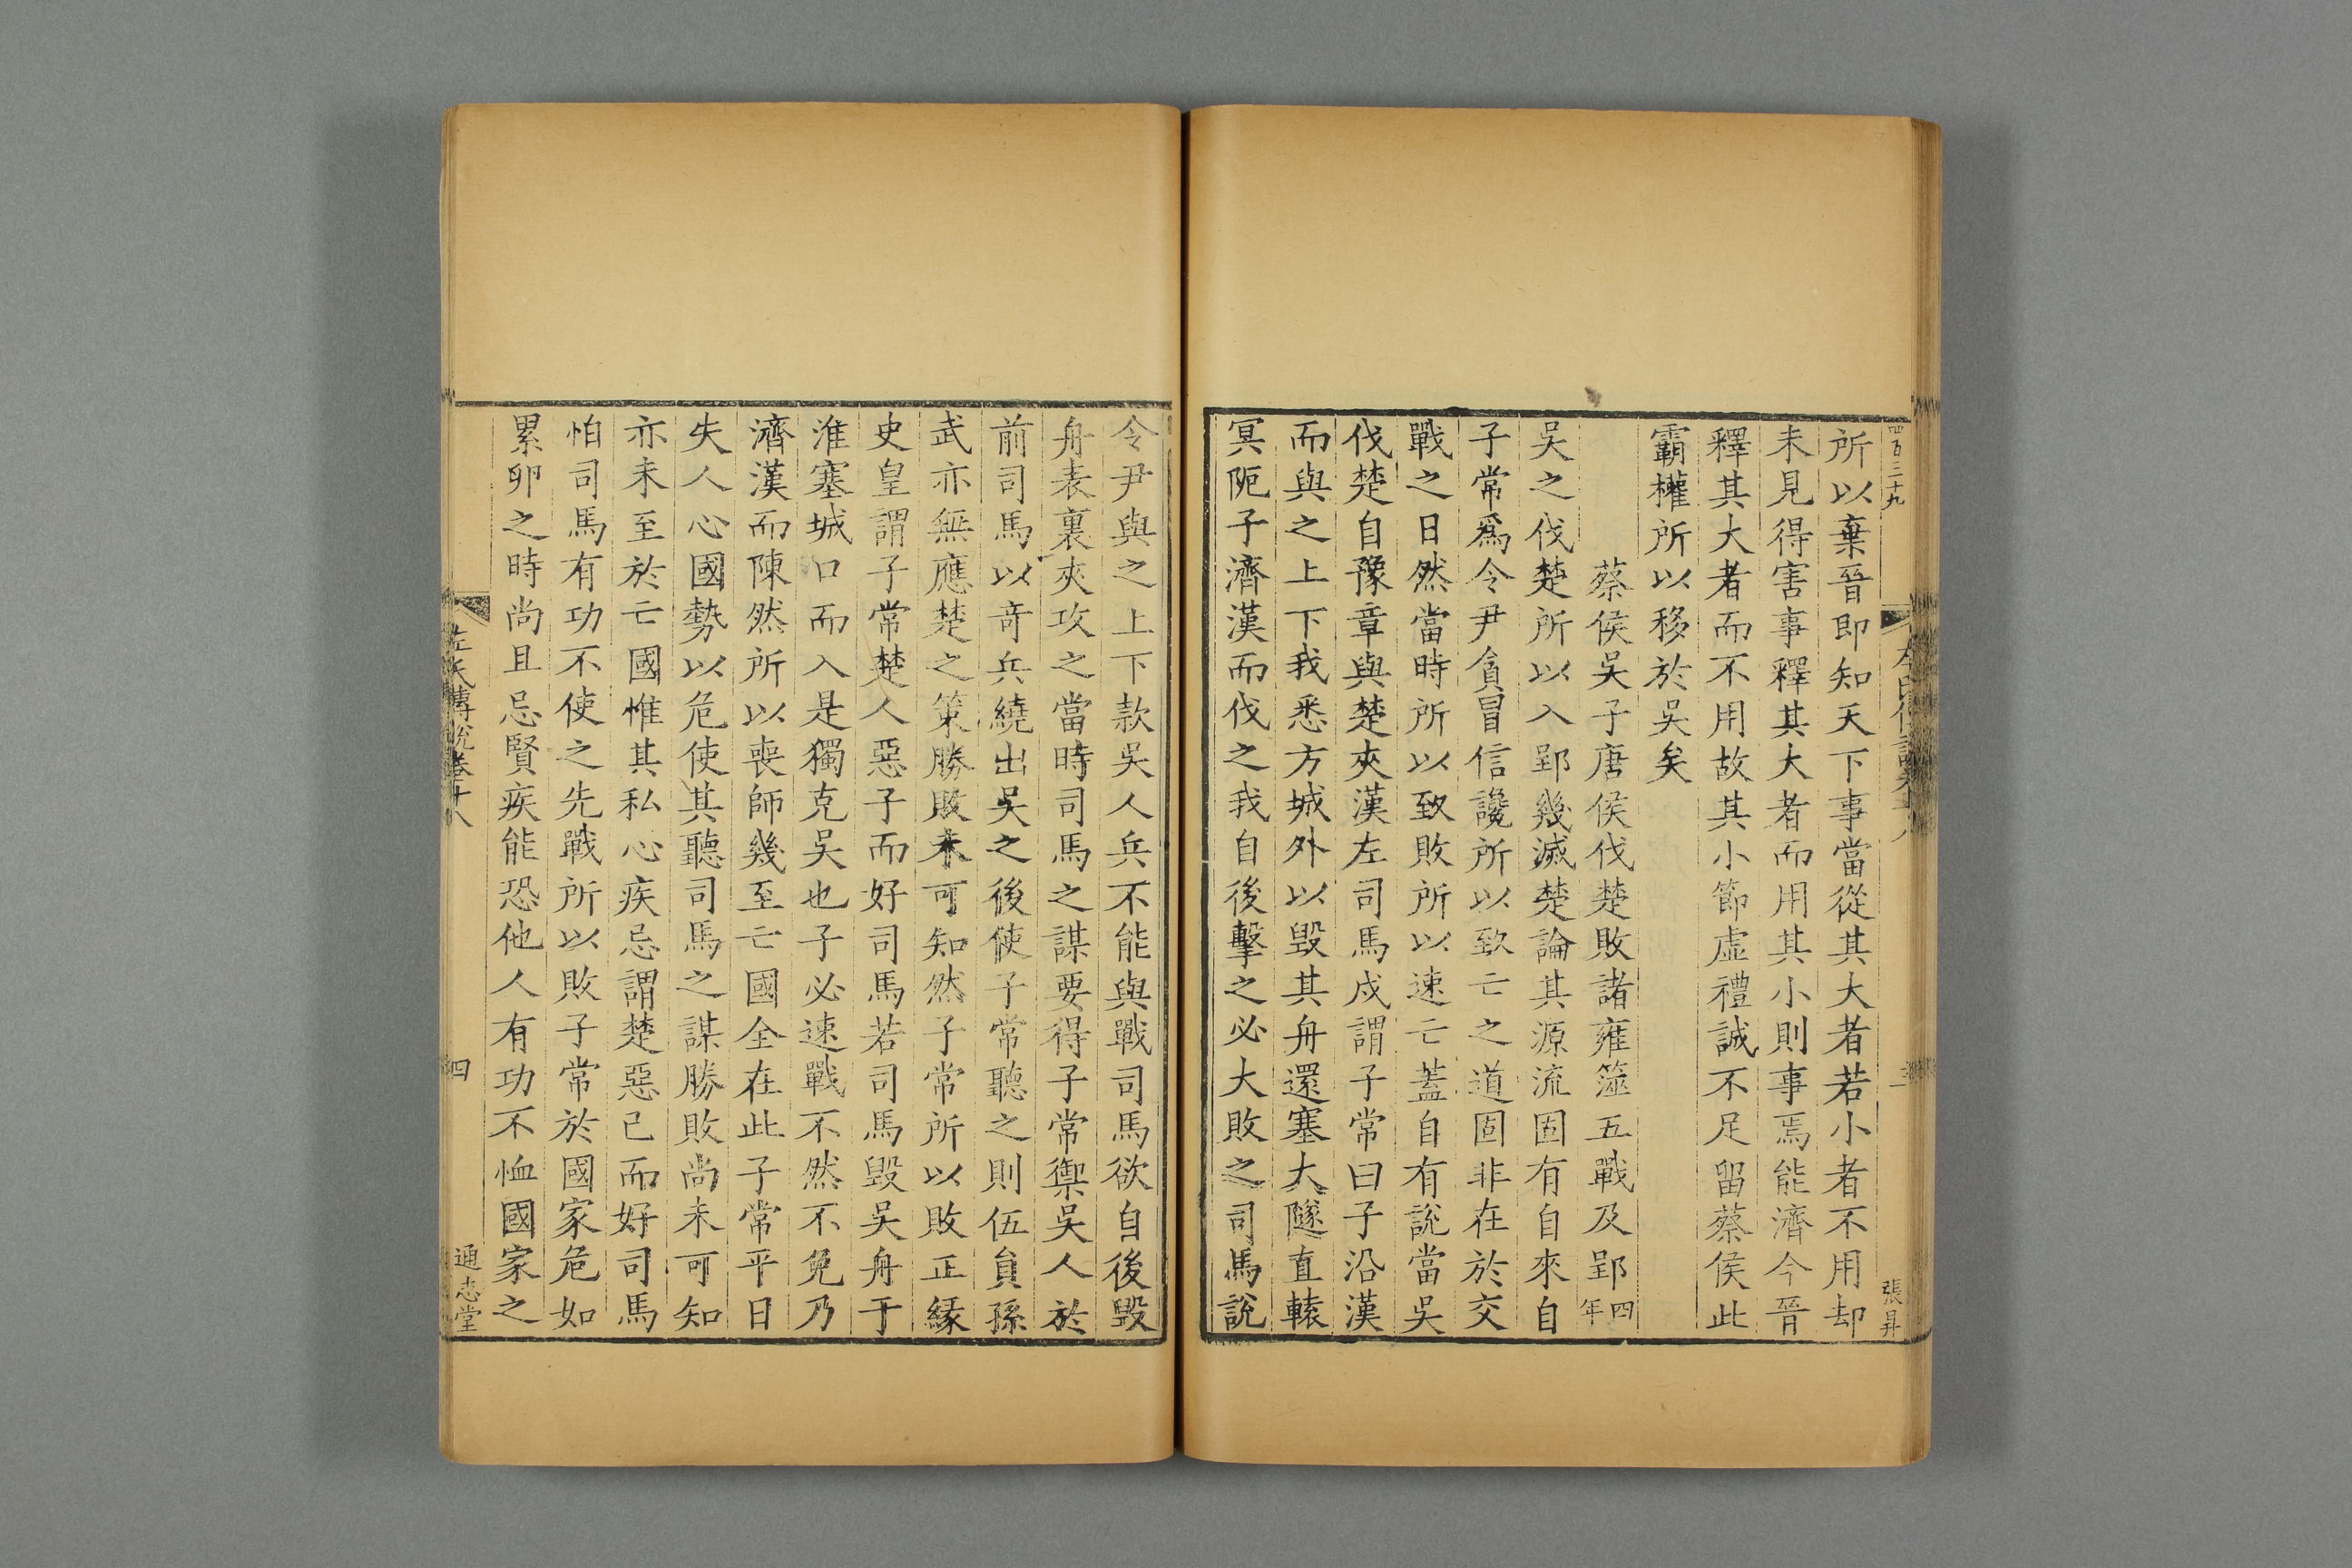 四百三十九
張昇
所以棄晉即知天下事當從其大者若小者不用却
未見得害事釋其大者而用其小則事焉能濟今晉
釋其大者而不用故其小節虛禮誠不足留蔡侯此
霸權所以移於吳矣
蔡侯吳子唐侯伐楚敗諸雍澨五戰及郢四年
吳之伐楚所以入郢幾滅楚論其源流固有自來自
子常爲令尹貪冒信讒所以致亡之道固非在於交
戰之日然當時所以致敗所以速亡蓋自有說當吳
伐楚自豫章與楚夾漢左司馬戍謂子常曰子沿漢
而與之上下我悉方城外以毀其舟還塞大隧直轅
冥阨子濟漢而伐之我自後擊之必大敗之司馬說
令尹與之上下款吳人兵不能與戰司馬欲自後毀
舟表裏夾攻之當時司馬之謀要得子常禦吳人於
前司馬以奇兵繞出吳之後使子常聽之則伍員孫
武亦無應楚之策勝敗未可知然子常所以敗正緣
史皇謂子常楚人惡子而好司馬若司馬毀吳舟于
淮塞城口而入是獨克吳也子必速戰不然不免乃
濟漢而陳然所以喪師幾至亡國全在此子常平日
失人心國勢以危使其聽司馬之謀勝敗尚未可知
亦未至於亡國惟其私心疾忌謂楚惡己而好司馬
怕司馬有功不使之先戰所以敗子常於國家危如
累卵之時尚且忌賢疾能恐他人有功不恤國家之
左氏傳說卷十八
四
通志堂